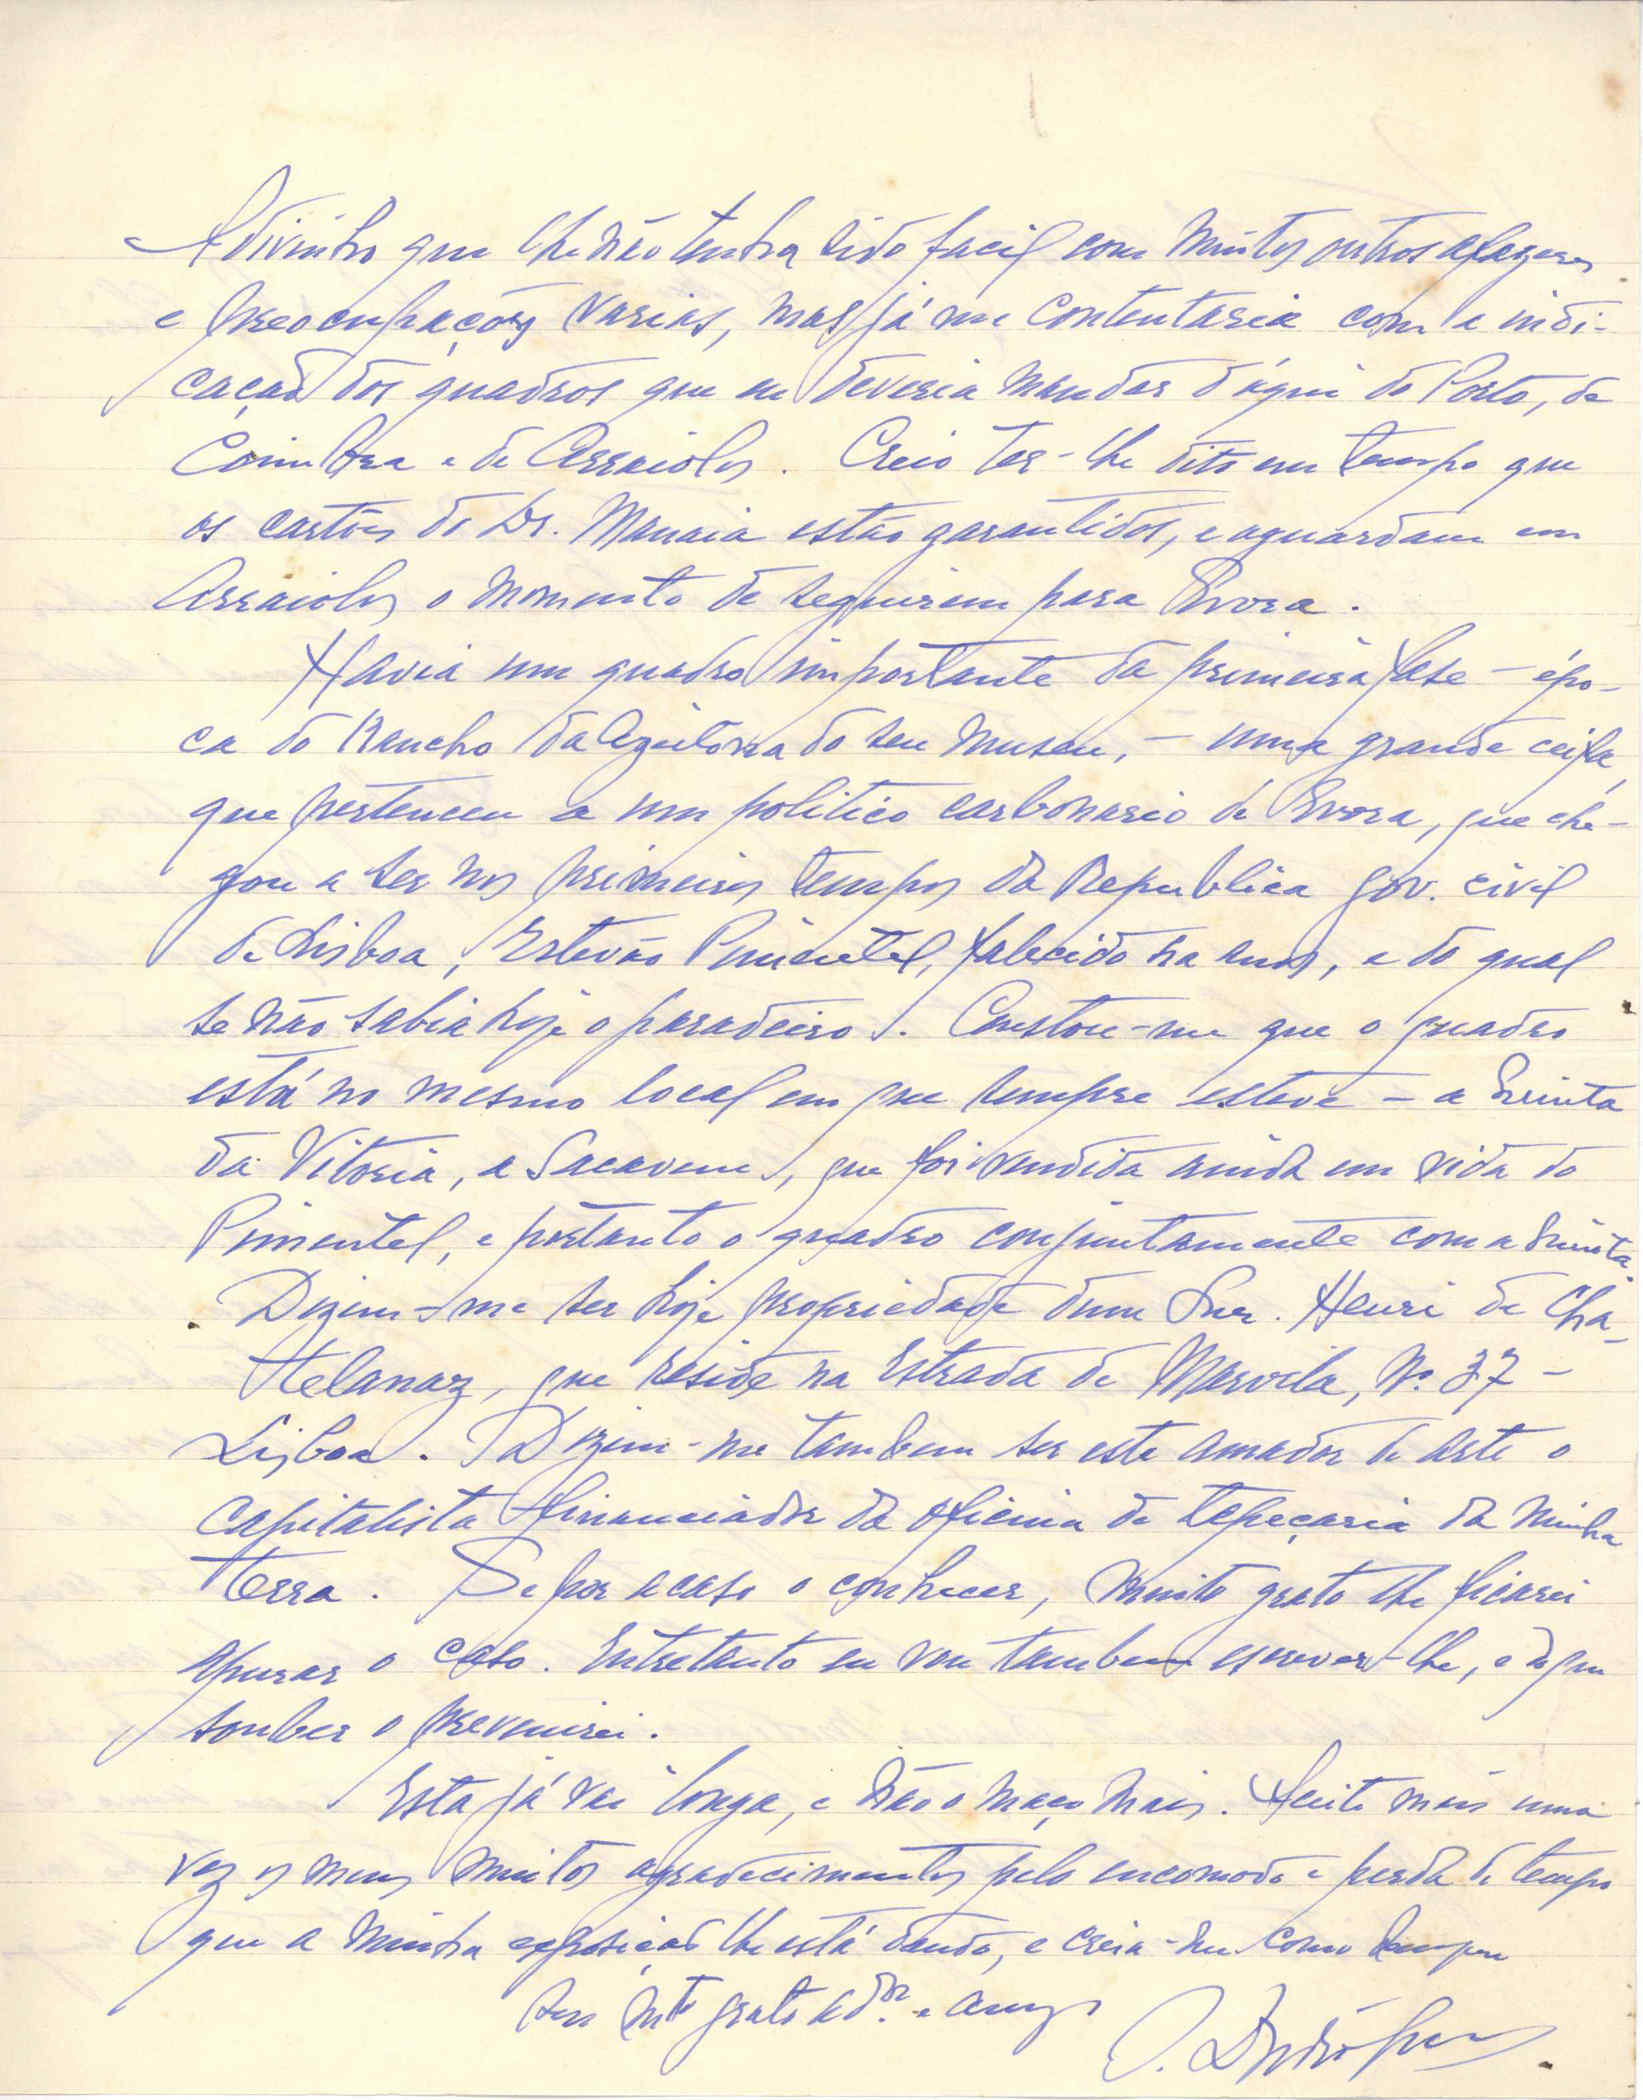 Adivinho que lhe não tenha sido facil com muitos outros afazeres
e preocupações varias, mas já me contentaria com a indi-
cação dos quadros que eu deveria mandar d'áqui do Porto, de
Coimbra e de Arraiolos. Creio ter-lhe dito em tempo que
os cartões do Dr. Manaia estão garantidos, e aguardam em
Arraiolos o momento de seguirem para Évora.
Havia um quadro importante da primeira fase – épo-
ca do Rancho da Azeitona do seu museu, – uma grande ceifa,
que pertenceu a um politico carbonario de Evora, que che-
gou a ser nos primeiros tempos da Republica gov. civil
de Lisboa, Estevão Pimentel, falecido ha anos, e do qual
se não sabia hoje o paradeiro. Constou-me que o quadro
está no mesmo local em que sempre esteve – a Quinta
da Vitoria, a Sacavem, que foi vendida ainda em vida do
Pimentel, e portanto o quadro conjuntamente com a Quinta.
Dizem-me ser hoje propriedade dum Snr. Henri de Cha-
telanaz, que reside na Estrada de Marvila, Nº. 37 –
Lisboa. Dizem-me tambem ser este amador de arte o
capitalista financiador da oficina de tapeçaria da minha
terra. Se por acaso o conhecer, muito grato lhe ficarei
apurar o caso. Entretanto eu vou tambem escrever-lhe, e do que
souber o prevenirei.
Esta já vai longa, e não o maço mais. Aceite mais uma
vez os meus muitos agradecimentos pelo encomodo e perda de tempo
que a minha exposição lhe está dando, e creia-me como sempre
seu mtº grato adºr. e amigo